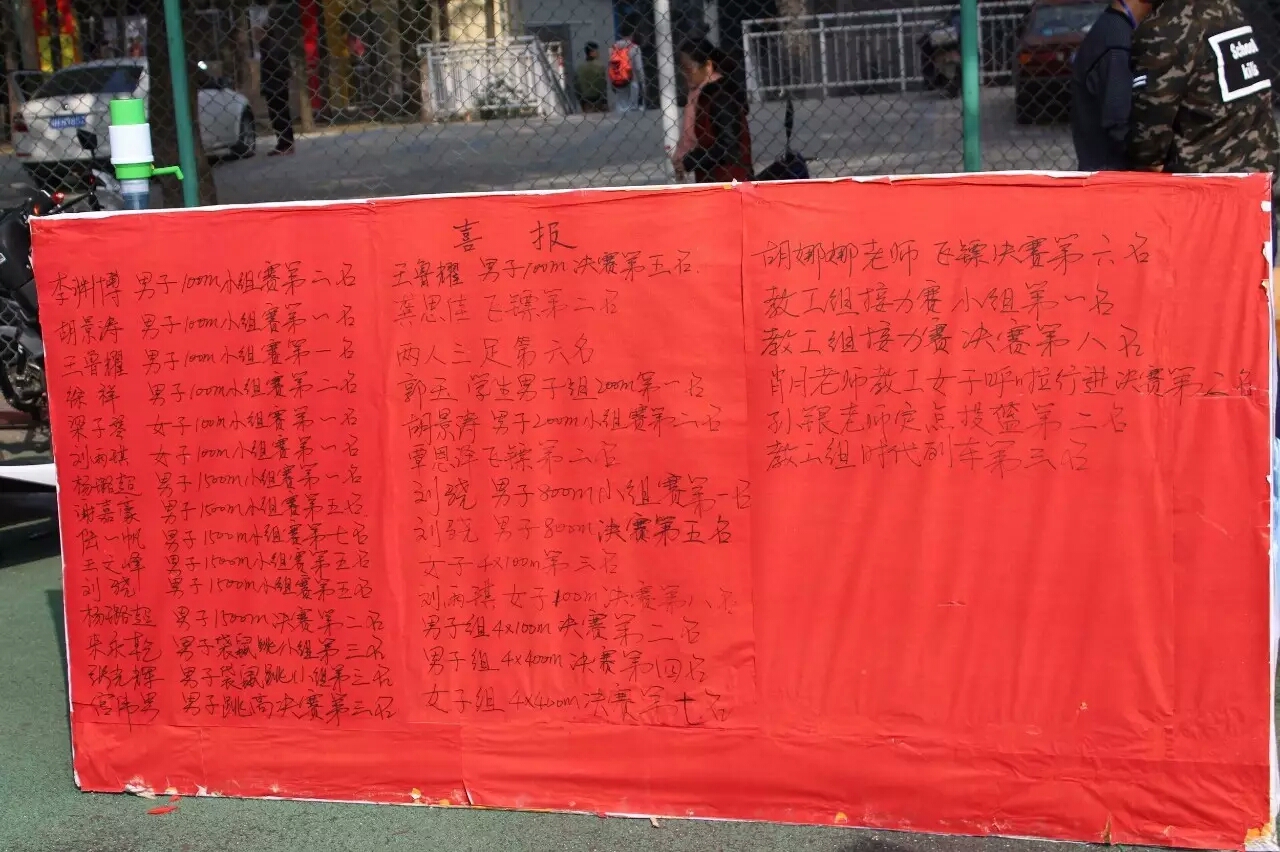 喜报
李 博 男子100m小组赛第二名
胡景涛 男子100m小组赛第一名
王鲁耀 男子100m小组赛第一名
徐祥 男子100m小组赛第二名
梁子 女子100m小组赛第一名
刘雨琪 女子100m小组赛第一名
杨璐超 男子1500m小组赛第一名
谢嘉豪 男子1500m小组赛第五名
陆一帆 男子1500m小组赛第七名
王文峰 男子1500m小组赛第五名
刘骁 男子1500m小组赛第五名
杨璐超 男子1500m决赛第二名
朱永乾 男子袋鼠跳小组第三名
张光辉 男子袋鼠跳小组第三名
宫伟 男子跳高决赛第三名
王鲁耀 男子100m决赛第五名
龚思佳 飞镖第二名
两人三足第六名
郭玉 学生男子组200m第一名
胡景涛 男子200m小组赛第二名
覃恩泽飞镖第二名
刘骁 男子800m小组赛第一名
刘骁 男子800m决赛第五名
女子4x100m第三名
刘雨琪女子100m决赛第八名
男子组4x100m决赛第二名
男子组4x400m决赛第四名
女子组4x400m决赛第七名
胡娜娜老师飞镖决赛第六名
教工组接力赛小组第一名
教工组接力赛决赛第八名
肖月老师教工女子呼啦行进决赛第二名
孙银老师定点投篮第二名
教工组时代列车第三名
School
kils